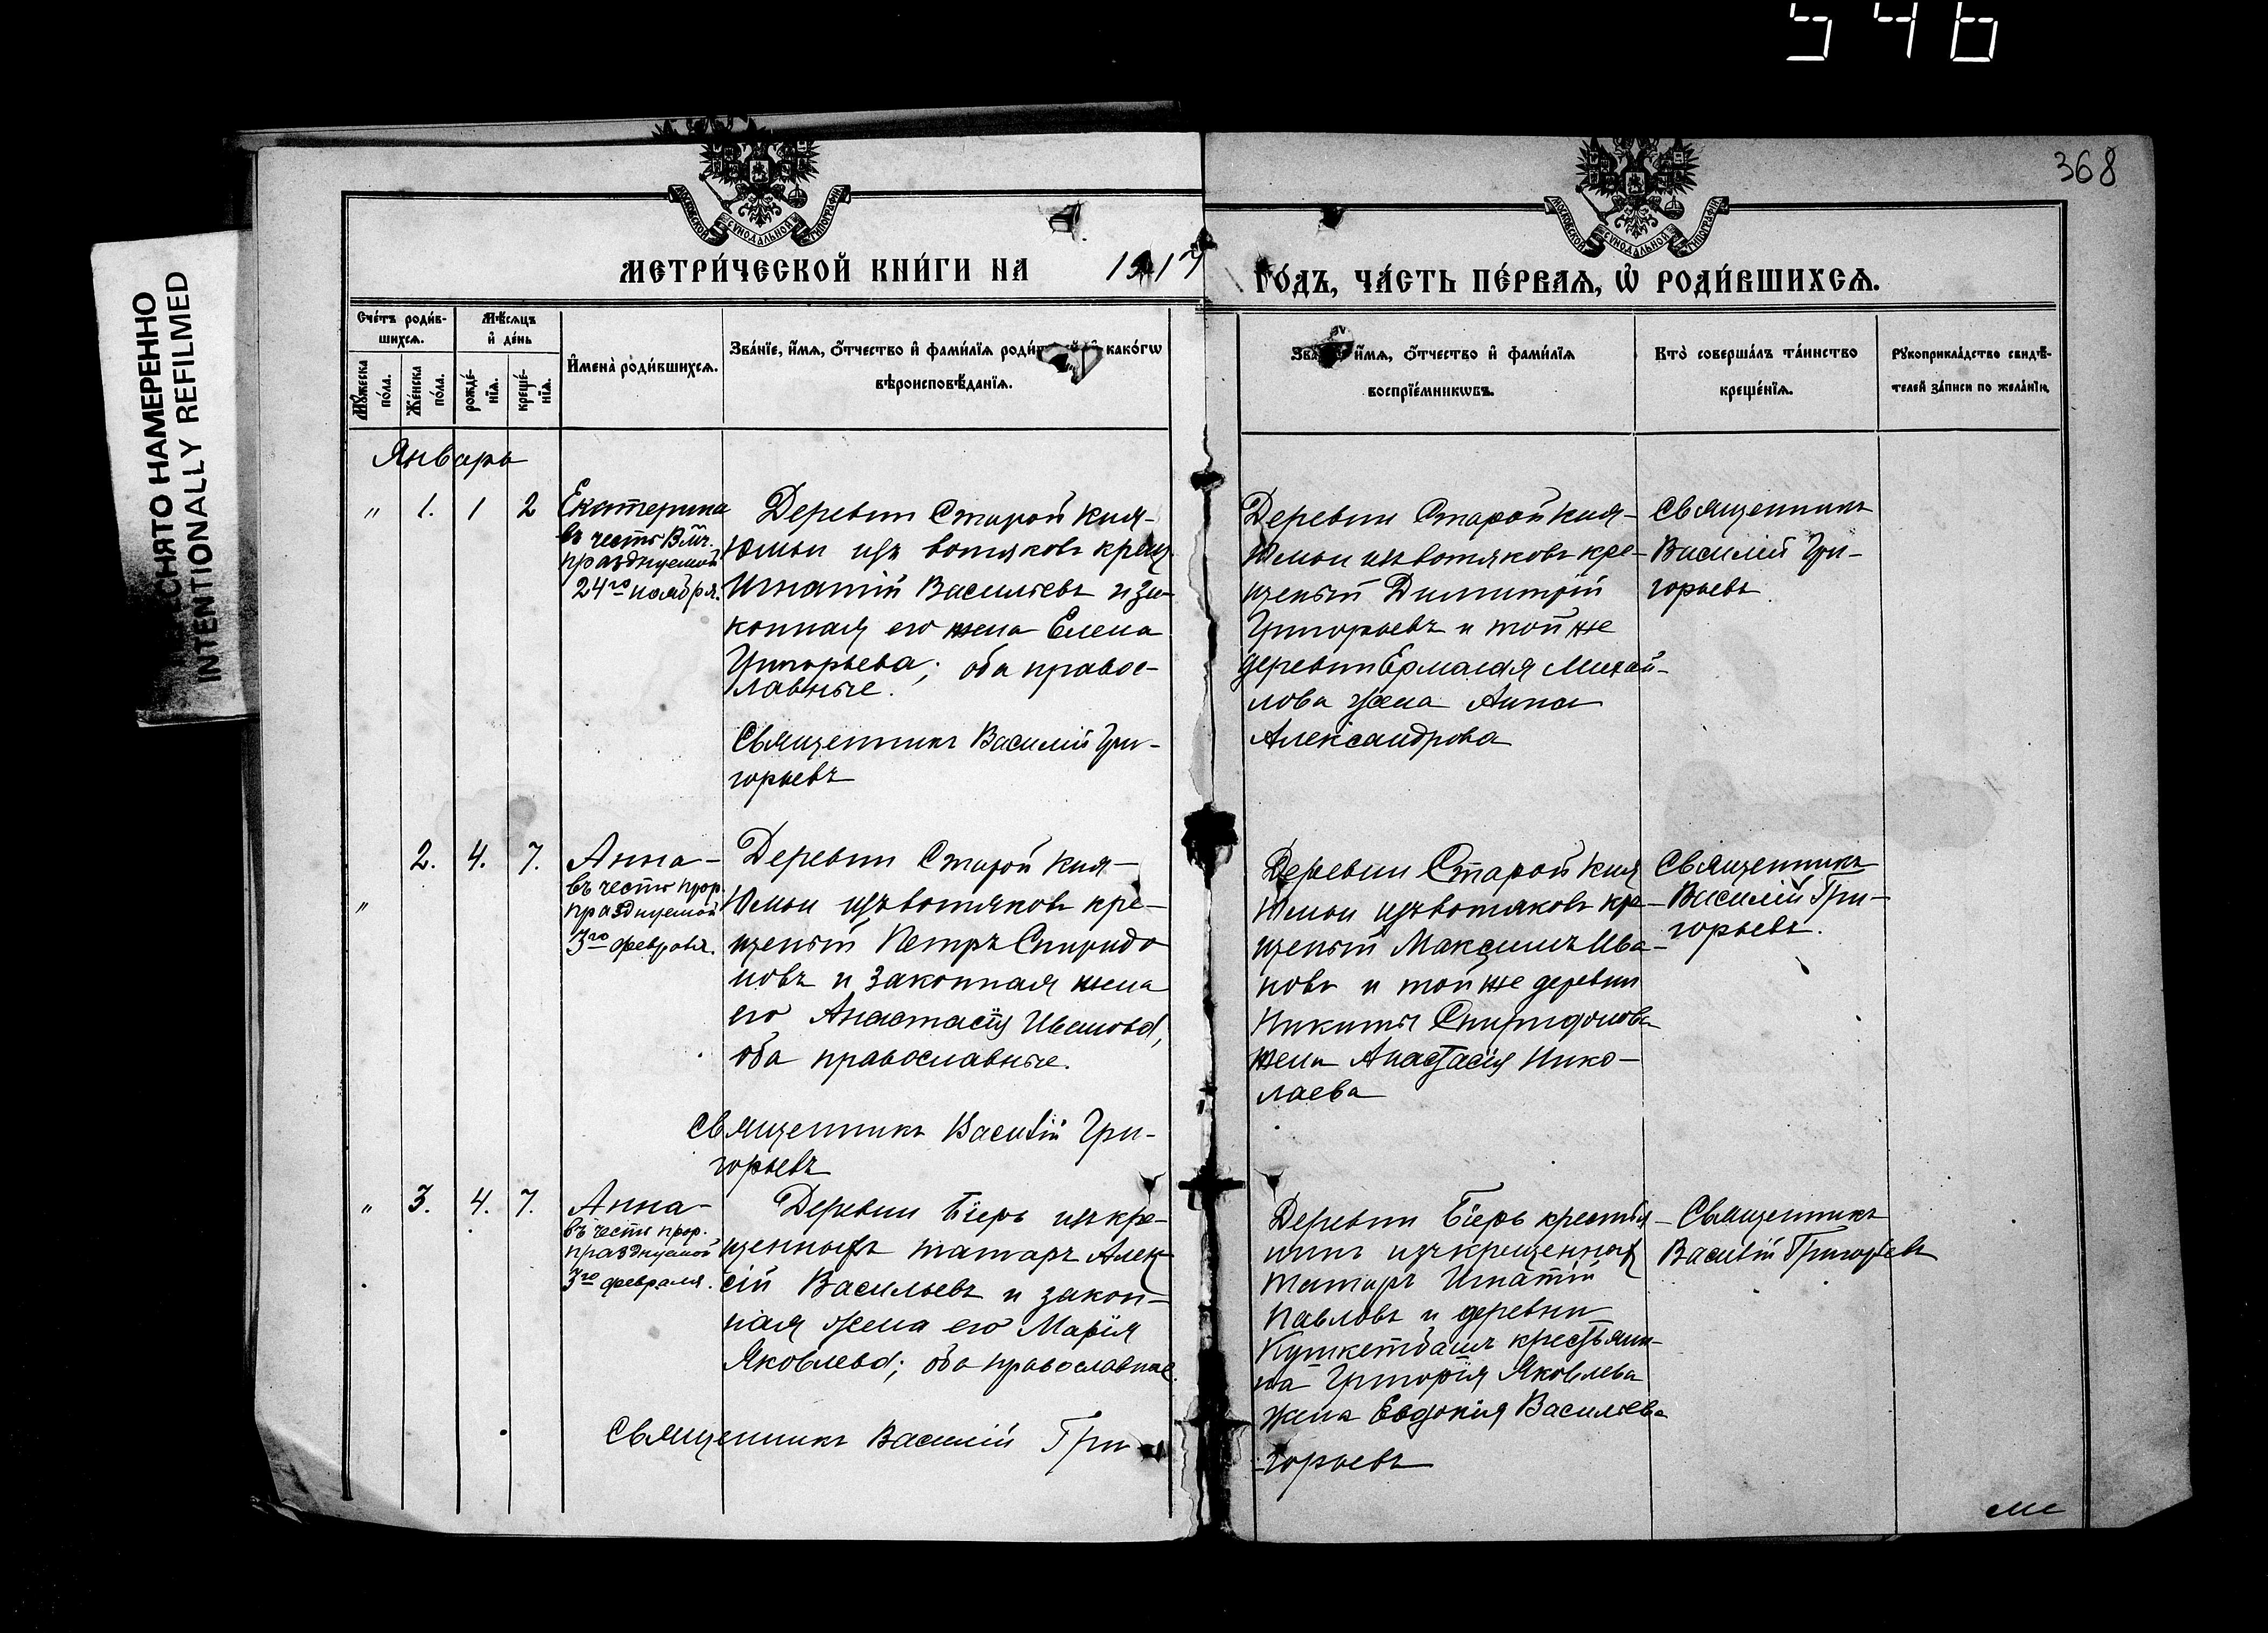 546
368
СНЯТО НАМЕРЕННО
INTENTIONALLY REFILMED
МОСКОВСКОЙ СѴНОДАЛЬНОЙ ТИПОГРАФІИ
МОСКОВСКОЙ СѴНОДАЛЬНОЙ ТИПОГРАФІИ
МЕТРИ́ЧЕСКОЙ КНИ́ГИ НА 1917
ГО́ДЪ, ЧА́СТЬ ПЕ́РВАѦ, Ѡ҆ РОДИ́ВШИХСѦ.
Сче́тъ роди́в-
шихсѧ.
Мꙋ́жеска
по́ла.
Же́нска
по́ла.
Мѣ́сѧцъ
и҆ де́нь
рожде́-
нїѧ.
креще́-
нїѧ.
И҆мена̀ роди́вшихсѧ.
Зва́нїе, и҆́мѧ, ѻ҆́тчество и҆ фами́лїѧ и҆ како́гѡ
вѣроисповѣ́данїѧ.
и҆́мѧ, ѻ҆́тчество и҆ фами́лїѧ
воспрїе́мникѡвъ.
Кто̀ соверша́лъ та́инство
креще́нїѧ.
Рꙋкоприкла́дство свидѣ́-
телей за́писи по жела́нїю.
Январь
" 1. 1 2
Екатерина
въ честь Вмч.
празднуемой
24го ноября.
Деревни Старой Кня-
Юмьи изъ вотяковъ крещ
Игнатій Васильевъ и за-
конная его жена Елена
Григорьева; оба правос-
лавные.
Священникъ Василій Гри-
горьевъ
Деревни Старой Кня-
Юмьи изъ вотяковъ кре-
щеный Димитрій
Григорьевъ и той же
деревни Ермолая Михай-
лова жена Анна
Александрова
Священникъ
Василій Гри-
горьевъ.
" 2. 4. 7.
Анна-
въ честь прор.
празднуемой
3го февраля.
Деревни Старой Кня-
Юмьи изъ вотяковъ кре-
щеный Петръ Спиридо
новъ и законная жена
его Анастасія Иванова,
оба православные.
Священникъ Василій Гри-
горьевъ
Деревни Старой Кня
Юмьи изъ вотяковъ кре-
щеный Максимъ Ива-
новъ и той же деревни
Никиты Спиридонова
жена Анастасія Нико-
лаева
Священникъ
Василій Гри-
горьевъ.
" 3. 4. 7.
Анна-
въ честь прор.
празднуемой
3го февраля.
Деревни Біеръ изъ кре-
щенныхъ татаръ Алек
сій Васильевъ и закон-
ная жена его Марія
Яковлева; оба православные.
Священникъ Василій Гри-
горьевъ
Деревни Біеръ крестья-
нинъ изъ крещенныхъ
татаръ Игнатій
Павловъ и деревни
крестьяни-
на Григорія Яковлева
жена Евдокія Васильева
Священникъ
Василій Григорьевъ